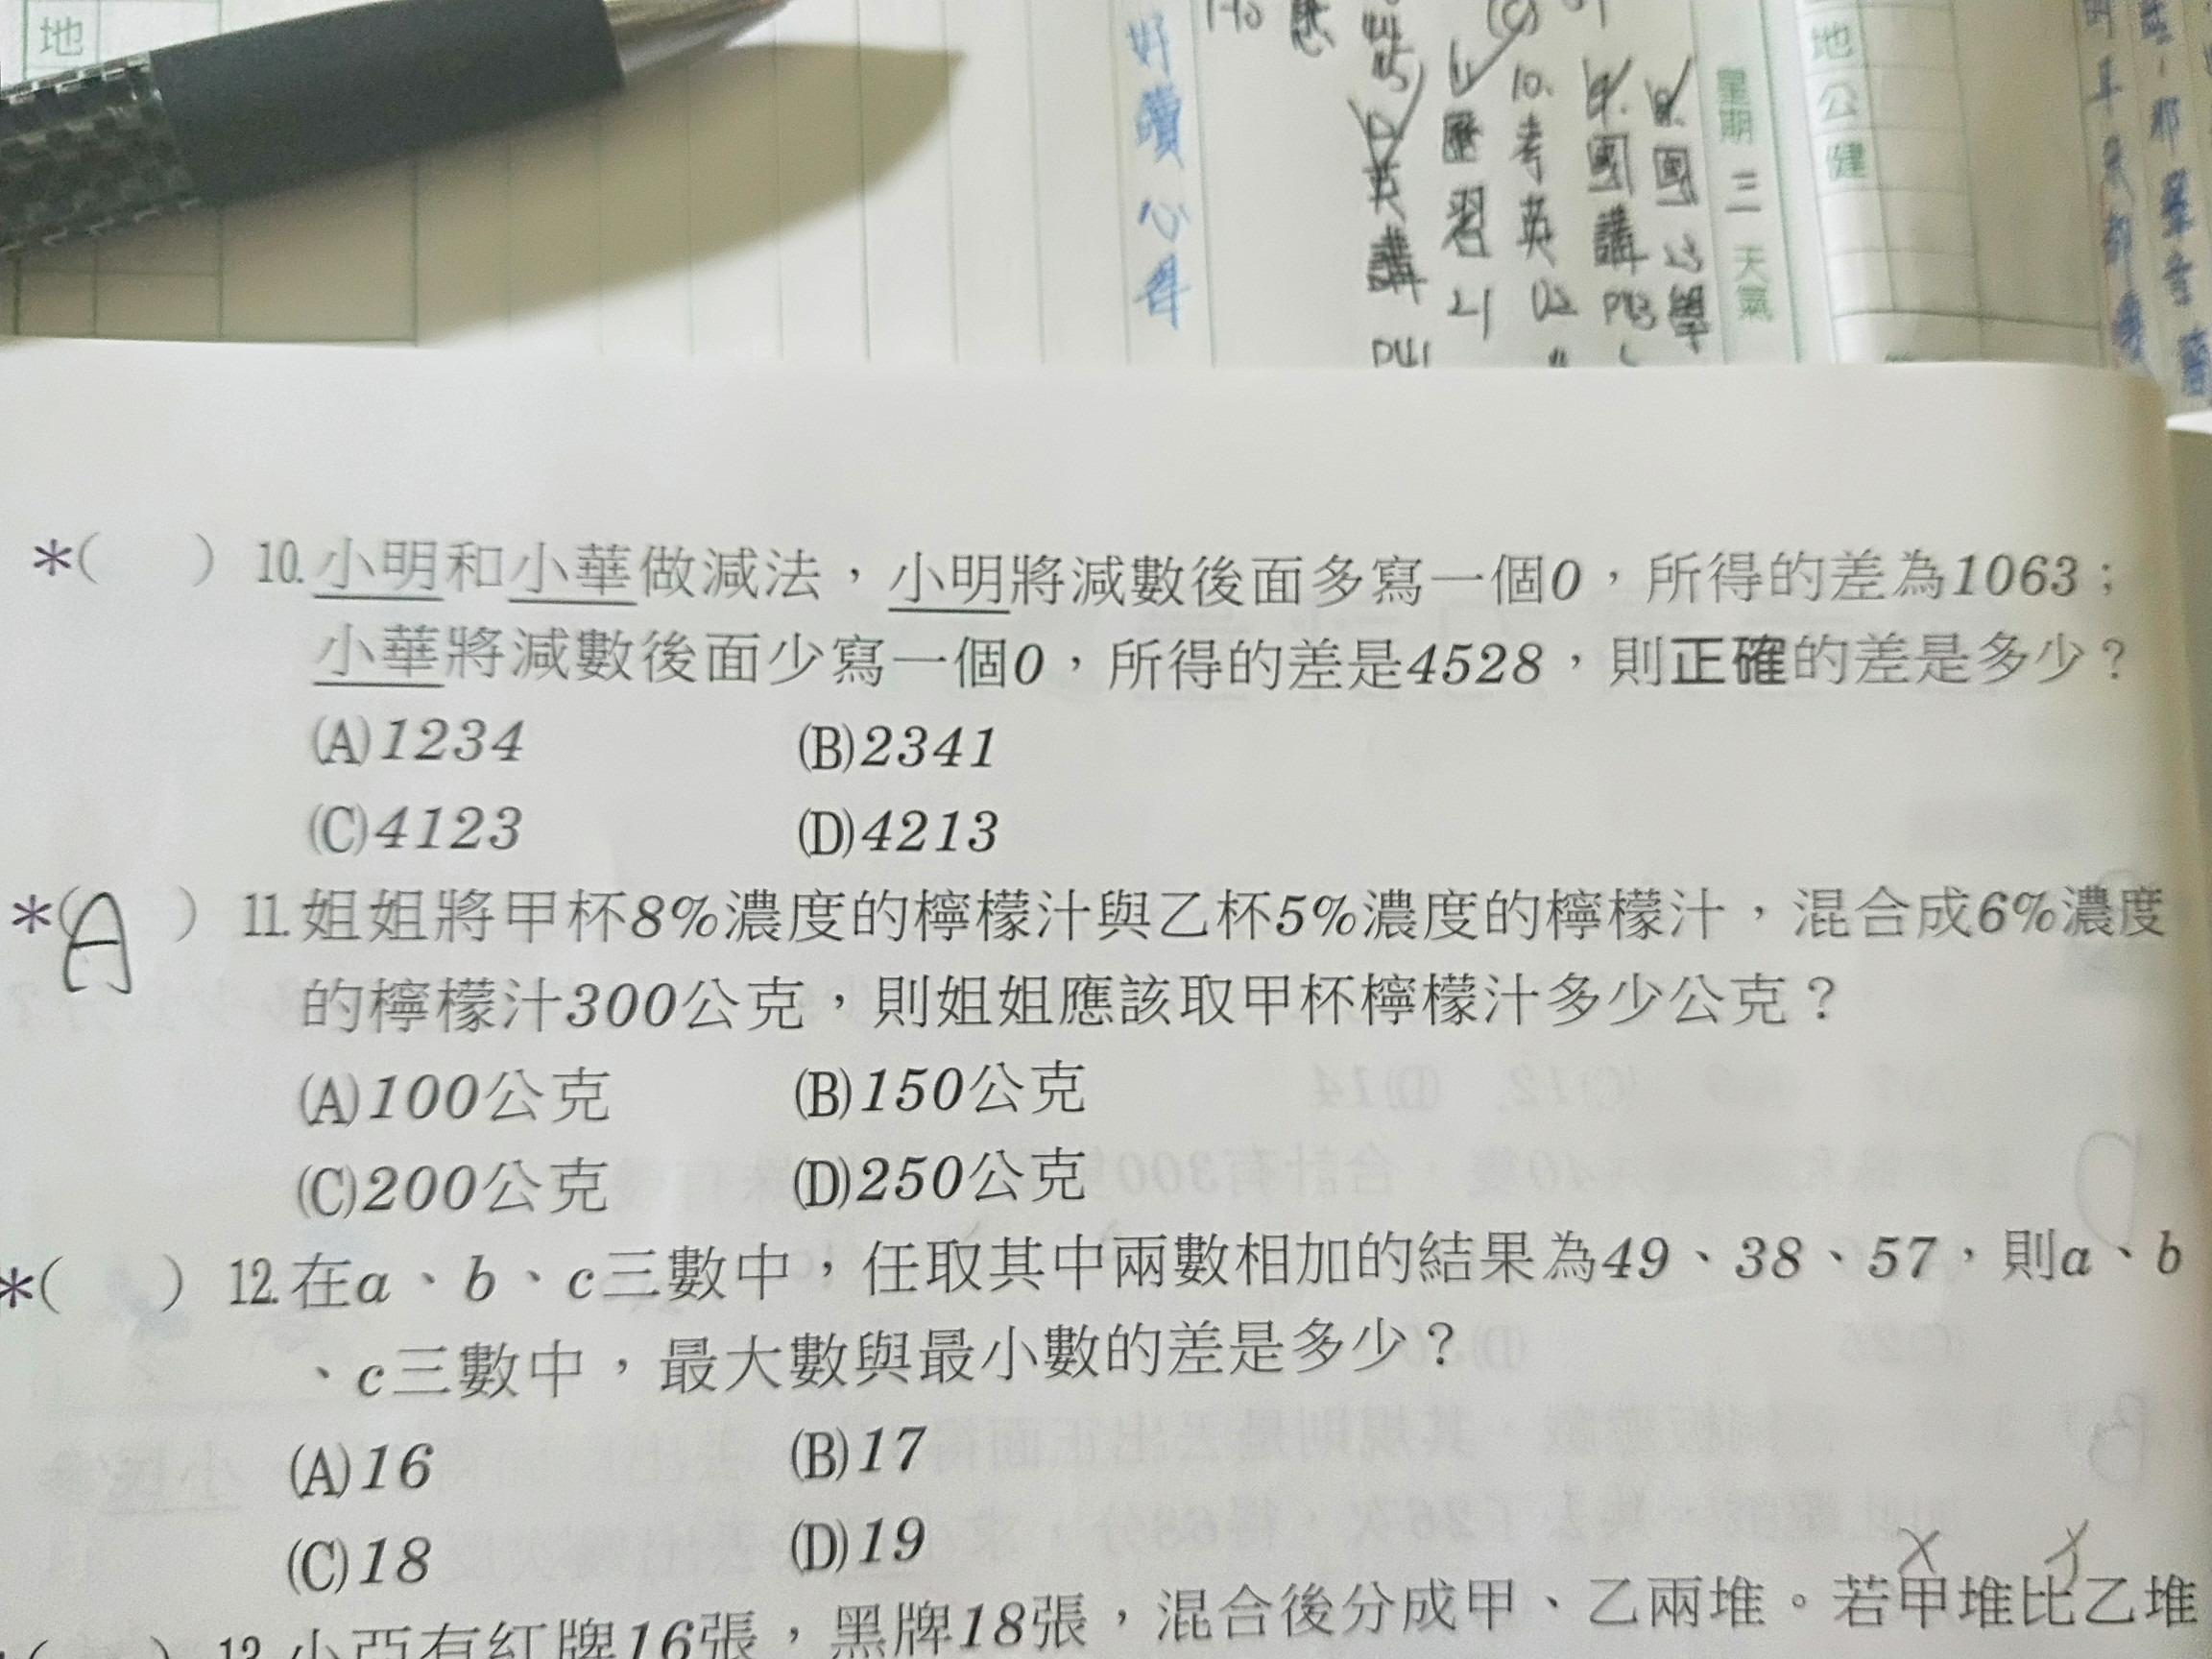 地
好
讀
心
得
11.
歷
習
21
10.
考
英
9.
國
講
8.
國
英
講
P41
星期 三 天氣
地
公
健
*( ) 10.小明和小華做減法，小明將減數後面多寫一個0，所得的差為1063；
小華將減數後面少寫一個0，所得的差是4528，則正確的差是多少？
(A)1234 (B)2341
(C)4123 (D)4213
*(A ) 11.姐姐將甲杯8%濃度的檸檬汁與乙杯5%濃度的檸檬汁，混合成6%濃度
的檸檬汁300公克，則姐姐應該取甲杯檸檬汁多少公克？
(A)100公克 (B)150公克
(C)200公克 (D)250公克
*( ) 12.在a、b、c三數中，任取其中兩數相加的結果為49、38、57，則a、b
、c三數中，最大數與最小數的差是多少？
(A)16 (B)17
(C)18 (D)19
x y
( ) 13.小亞有紅牌16張，黑牌18張，混合後分成甲、乙兩堆。若甲堆比乙堆